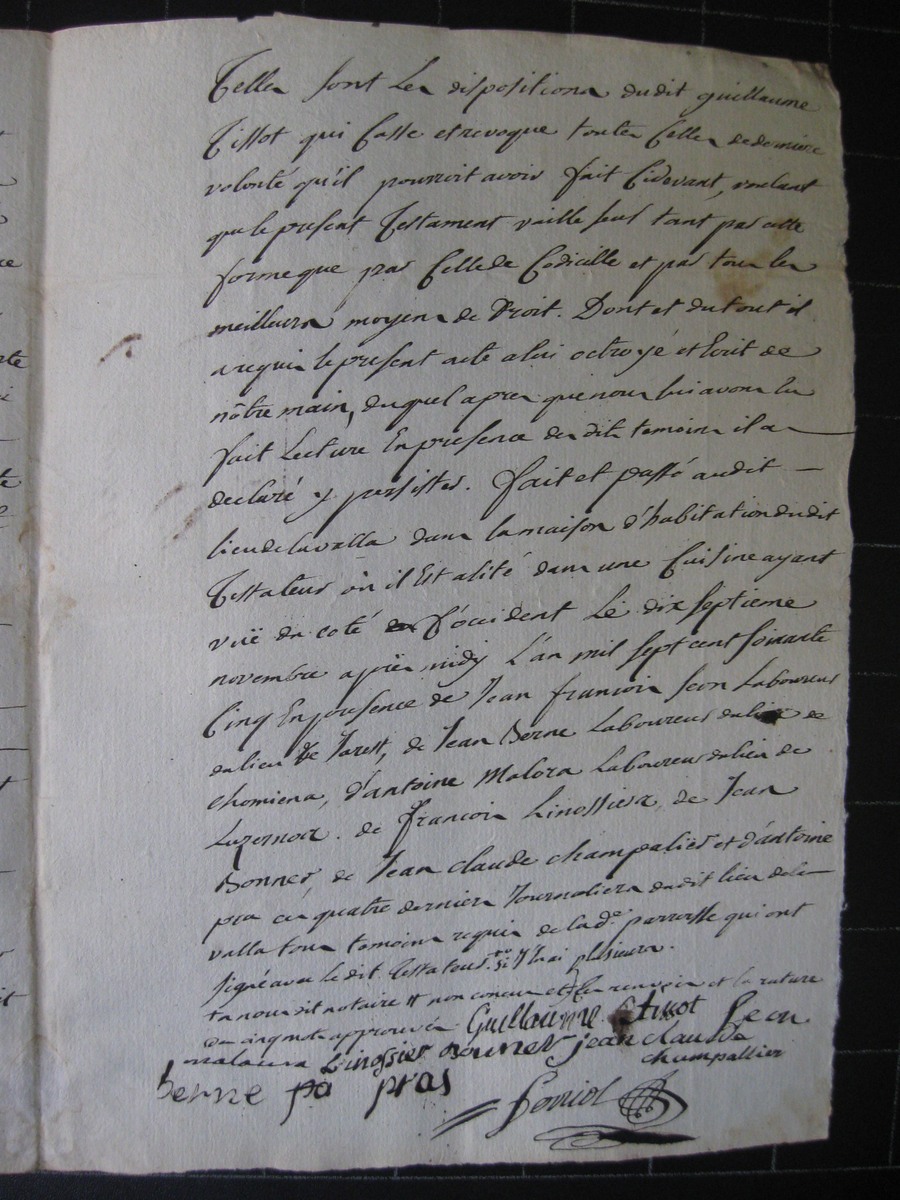 Telles sont les dispositions dudit guillaume
Tissot qui Casse et revoque toutes Celles de derniere
volonté qu'il pourroit avoir fait Cidevant, voulant
que le present Testament vaille seul tant par cette
forme que par Celle de Codicille et par tous les
meilleurs moyens de Droit. Dont et du tout il
a requis le present acte a lui octroyé et Ecrit de
nôtre main, duquel apres que nous lui avons lu
fait Lecture En presence des dits temoins il a
declaré y persister. fait et passé audit
lieu de lavalla dans la maison d'habitation dudit
Testateur où il Est alité dans une Cuisine ayant
vuë du coté d'occident Le dix septieme
novembre après midy L'an mil sept cent soixante
Cinq En presence de Jean francois Seon Laboureur
du lieu de Jarest, de Jean Berne Laboureur du lieu de
chomiena, d'antoine Malora Laboureur du lieu de
Luzernor. de francois Linossier, de Jean
Bonner, de Jean claude champalier et d'antoine
pra ces quatre derniers Journaliers dudit lieu de la
valla tous temoins requis de lad.e parroisse qui ont
signé avec le dit Testateur. plusieurs.
nousdit notaire non et les renvois et la rature
de cinq mots approuvés Guillaume tissot Seon
malaura Linossier Bonner jean claude
champallier
berne pra pras
Ferriol